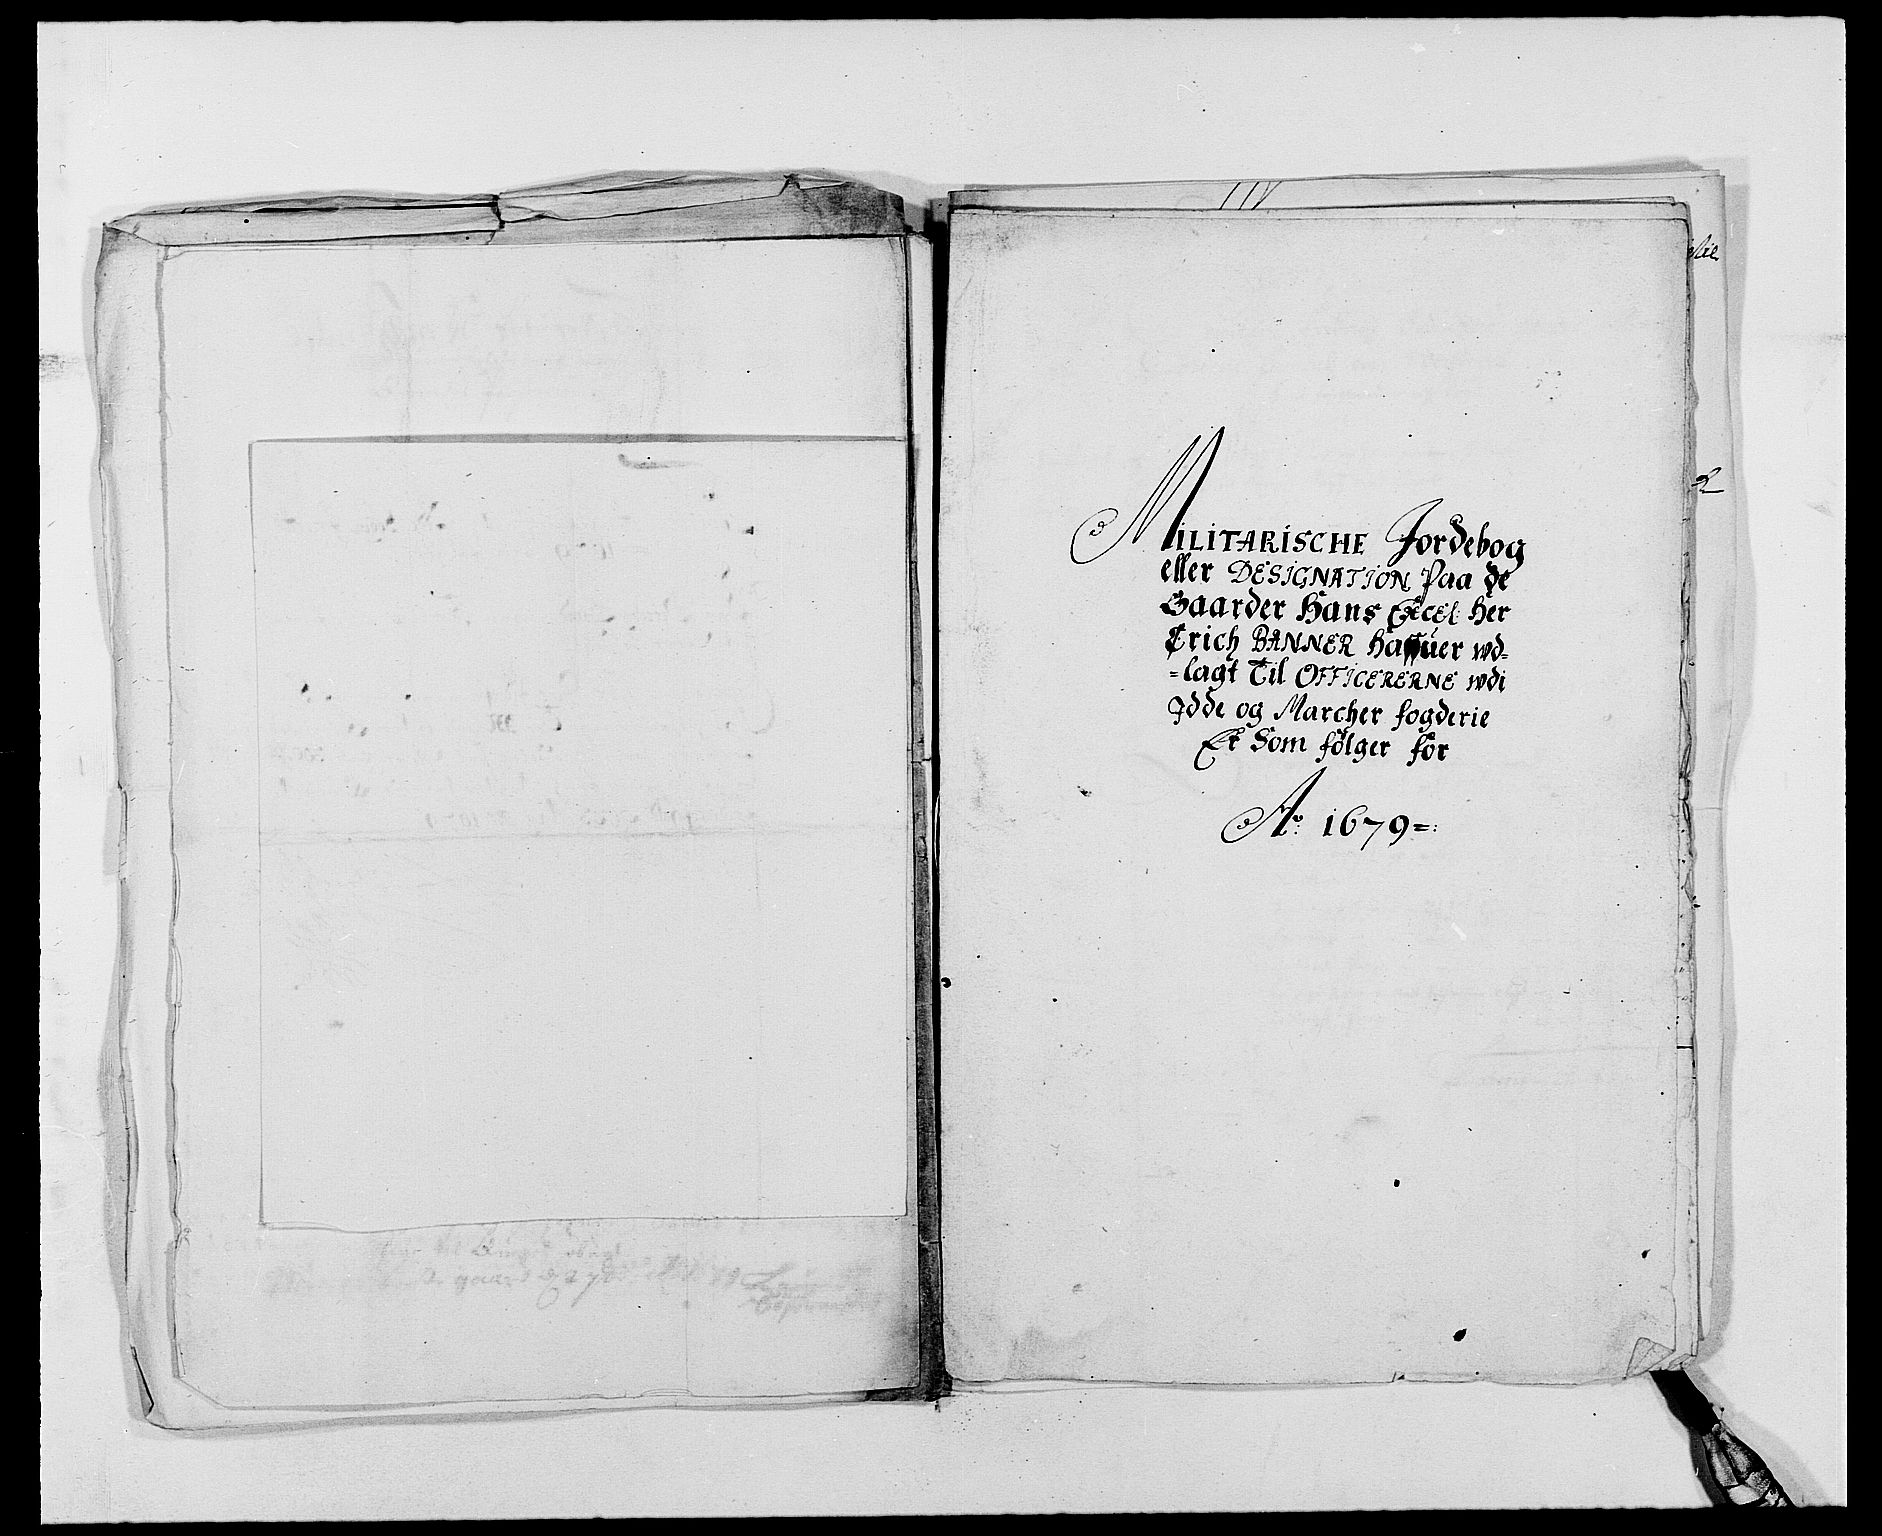 MILITARISCHE Jordebog
eller DESIGNATION Paa de
Gaarder Hans Excel: Her
Erich BANNER Hafuer wd-
=lagt Til OFFICERERNE wdi
Idde og Marcher fogderie
Er Som fölger for
Ao: 1679=: